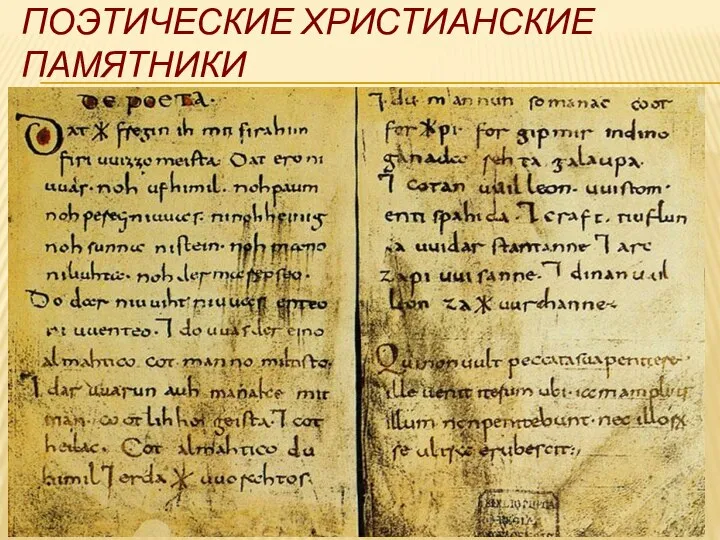 ПОЭТИЧЕСКИЕ ХРИСТИАНСКИЕ
ПАМЯТНИКИ
De poeta.
Dat * fregin ih mit firahim
firi uuizzo meista. Dat ero ni
uuas. noh ufhimil. noh paum
noh pereg ni uuas. ni nohheinig
noh sunna ni stein. noh mano
ni liuhta. noh der mareo seo.
Do dar niuuiht ni uuas enteo
ni uuenteo. ⁊ do uuas der eino
almahtico cot manno miltisto.
⁊ dar uuarun auh manake mit
man. cootlihhe geista. ⁊ cot
heilac. Cot almahtico du
himil ⁊ erda * uuorahtos.
⁊ du mannun so manac coot
for * pi. for gip mir in dino
ganada rehta galaupa.
⁊ cotan uuilleon. uuistom.
enti spahida. ⁊ craft. tiuflun
za uuidar stantanne. ⁊ arc
za pi uuisanne. ⁊ dinan uuil
leon za * uurchanne.
Qui non uult peccata sua penitere
ille uenit iterum ubi iam amplius
illum non penitebunt. nec illorum
se ultra erubescit.